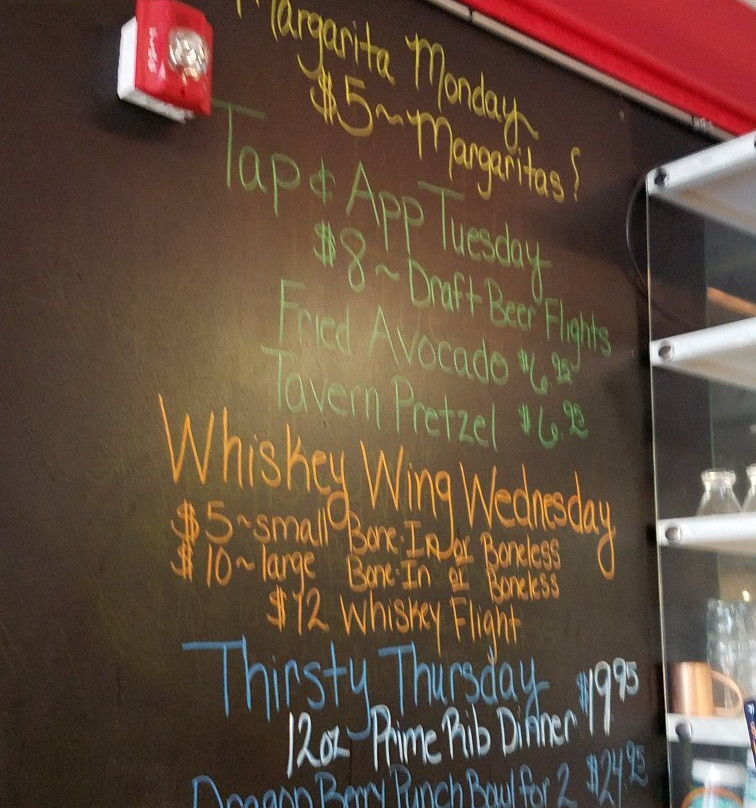 Margarita Monday
$5~Margaritas!
Tap & App Tuesday
$8~Draft Beer Flights
Fried Avocado $6.95
Tavern Pretzel $6.95
Whiskey Wing Wednesday
$5~small Bone-In or Boneless
$10~large Bone-In or Boneless
$12 Whiskey Flight
Thirsty Thursday
12oz Prime Rib Dinner $19.95
Dragon Berry Punch Bowl for 2 $24.95